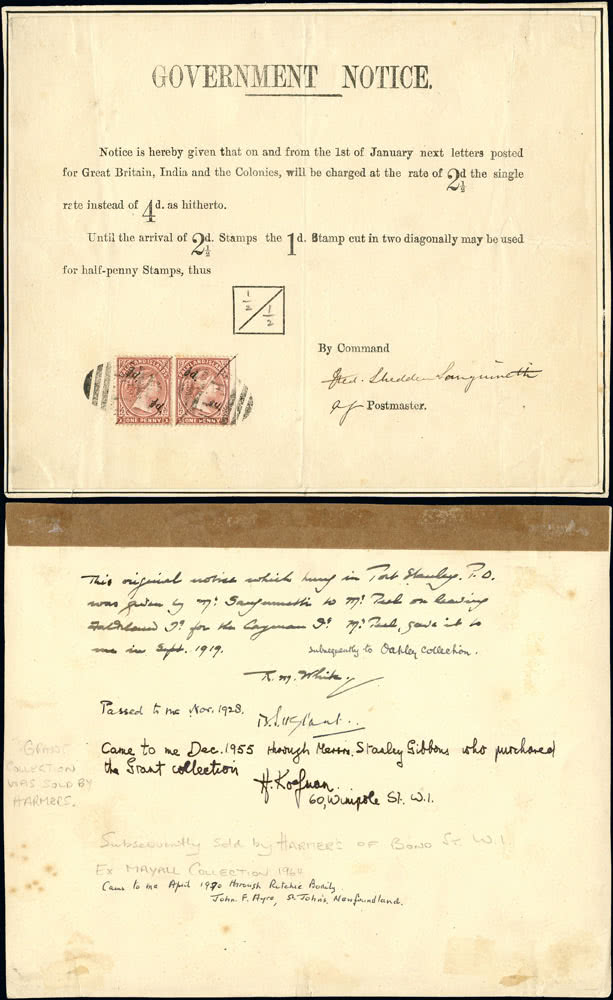 GOVERNMENT NOTICE.
Notice is hereby given that on and from the 1st of January next letters posted
for Great Britain, India and the Colonies, will be charged at the rate of 2½d the single
rate instead of 4d. as hitherto.
Until the arrival of 2½d. Stamps the 1d. Stamp cut in two diagonally may be used
for half-penny Stamps, thus
½ ½
By Command
Fred. Shedden Sanguinetti
Postmaster.
ONE PENNY ONE PENNY
This original notice which hung in Port Stanley. P.O.
was given by Mr Sanguinetti to Mr Peel on leaving
Falkland Is. for the Cayman Is. Mr Peel, gave it to
me in Sept. 1919. Subsequently to Oakley Collection.
R. M. White
Passed to me Nov. 1928.
Came to me Dec. 1955 through Messrs. Stanley Gibbons who purchased
the Grant collection
H. Kaufman.
60, Wimpole St. W.1.
GRANT
COLLECTION
WAS SOLD BY
HARMERS.
Subsequently sold by HARMERS OF BOND ST. W.1.
EX MAYALL COLLECTION 1964
Came to me April 1970 through Ritchie Bodily
John F. Ayre, St. John's, Newfoundland.